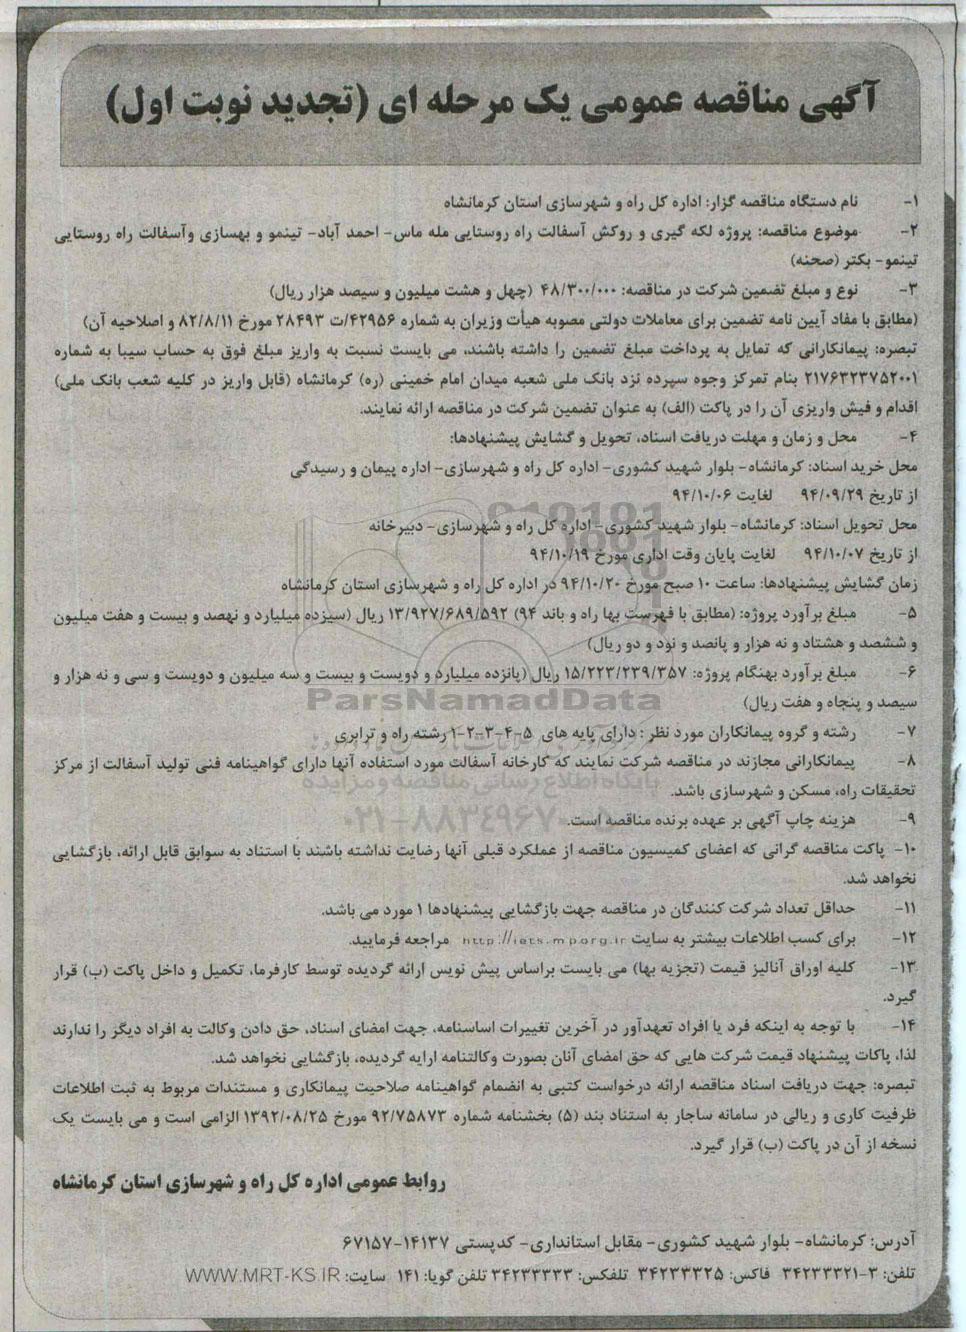 آگهی مناقصه عمومی یک مرحله ای (تجدید نوبت اول)
۱- نام دستگاه مناقصه گزار: اداره کل راه و شهرسازی استان کرمانشاه
۲- موضوع مناقصه: پروژه لکه گیری و روکش آسفالت راه روستایی مله ماس- احمد آباد- تینمو و بهسازی وآسفالت راه روستایی
تینمو- بکتر (صحنه)
۳- نوع و مبلغ تضمین شرکت در مناقصه: ۴۸/۳۰۰/۰۰۰ (چهل و هشت میلیون و سیصد هزار ریال)
(مطابق با مفاد آیین نامه تضمین برای معاملات دولتی مصوبه هیأت وزیران به شماره ۴۲۹۵۶/ت ۲۸۴۹۳ مورخ ۸۲/۸/۱۱ و اصلاحیه آن)
تبصره: پیمانکارانی که تمایل به پرداخت مبلغ تضمین را داشته باشند، می بایست نسبت به واریز مبلغ فوق به حساب سیبا به شماره
۲۱۷۶۳۲۳۷۵۲۰۰۱ بنام تمرکز وجوه سپرده نزد بانک ملی شعبه میدان امام خمینی (ره) کرمانشاه (قابل واریز در کلیه شعب بانک ملی)
اقدام و فیش واریزی آن را در پاکت (الف) به عنوان تضمین شرکت در مناقصه ارائه نمایند.
۴- محل و زمان و مهلت دریافت اسناد، تحویل و گشایش پیشنهادها:
محل خرید اسناد: کرمانشاه- بلوار شهید کشوری- اداره کل راه و شهرسازی- اداره پیمان و رسیدگی
از تاریخ ۹۴/۰۹/۲۹ لغایت ۹۴/۱۰/۰۶
محل تحویل اسناد: کرمانشاه- بلوار شهید کشوری- اداره کل راه و شهرسازی- دبیرخانه
از تاریخ ۹۴/۱۰/۰۷ لغایت پایان وقت اداری مورخ ۹۴/۱۰/۱۹
زمان گشایش پیشنهادها: ساعت ۱۰ صبح مورخ ۹۴/۱۰/۲۰ در اداره کل راه و شهرسازی استان کرمانشاه
۵- مبلغ برآورد پروژه: (مطابق با فهرست بها راه و باند ۹۴) ۱۳/۹۲۷/۶۸۹/۵۹۲ ریال (سیزده میلیارد و نهصد و بیست و هفت میلیون
و ششصد و هشتاد و نه هزار و پانصد و نود و دو ریال)
۶- مبلغ برآورد بهنگام پروژه: ۱۵/۲۲۳/۲۳۹/۳۵۷ ریال (پانزده میلیارد و دویست و بیست و سه میلیون و دویست و سی و نه هزار و
سیصد و پنجاه و هفت ریال)
ParsNamadData
۷- رشته و گروه پیمانکاران مورد نظر : دارای پایه های ۵-۴-۳-۲-۱ رشته راه و ترابری
۸- پیمانکارانی مجازند در مناقصه شرکت نمایند که کارخانه آسفالت مورد استفاده آنها دارای گواهینامه فنی تولید آسفالت از مرکز
پایگاه اطلاع رسانی مناقصه و مزایده
تحقیقات راه، مسکن و شهرسازی باشد.
۹- هزینه چاپ آگهی بر عهده برنده مناقصه است.
۰۲۱-۸۸۳۴۹۶۷۰-۵
۱۰- پاکت مناقصه گرانی که اعضای کمیسیون مناقصه از عملکرد قبلی آنها رضایت نداشته باشند با استناد به سوابق قابل ارائه، بازگشایی
نخواهد شد.
۱۱- حداقل تعداد شرکت کنندگان در مناقصه جهت بازگشایی پیشنهادها ۱ مورد می باشد.
۱۲- برای کسب اطلاعات بیشتر به سایت http://iets.mporg.ir مراجعه فرمایید.
۱۳- کلیه اوراق آنالیز قیمت (تجزیه بها) می بایست براساس پیش نویس ارائه گردیده توسط کارفرما، تکمیل و داخل پاکت (ب) قرار
گیرد.
۱۴- با توجه به اینکه فرد یا افراد تعهدآور در آخرین تغییرات اساسنامه، جهت امضای اسناد، حق دادن وکالت به افراد دیگر را ندارند
لذا، پاکات پیشنهاد قیمت شرکت هایی که حق امضای آنان بصورت وکالتنامه ارایه گردیده، بازگشایی نخواهد شد.
تبصره: جهت دریافت اسناد مناقصه ارائه درخواست کتبی به انضمام گواهینامه صلاحیت پیمانکاری و مستندات مربوط به ثبت اطلاعات
ظرفیت کاری و ریالی در سامانه ساجار به استناد بند (۵) بخشنامه شماره ۹۲/۷۵۸۷۳ مورخ ۱۳۹۲/۰۸/۲۵ الزامی است و می بایست یک
نسخه از آن در پاکت (ب) قرار گیرد.
روابط عمومی اداره کل راه و شهرسازی استان کرمانشاه
آدرس: کرمانشاه- بلوار شهید کشوری- مقابل استانداری- کدپستی ۱۴۱۳۷-۶۷۱۵۷
تلفن: ۳-۳۴۲۳۳۳۲۱ فاکس: ۳۴۲۳۳۳۲۵ تلفکس: ۳۴۲۳۳۳۳۳ تلفن گویا: ۱۴۱ سایت: WWW.MRT-KS.IR